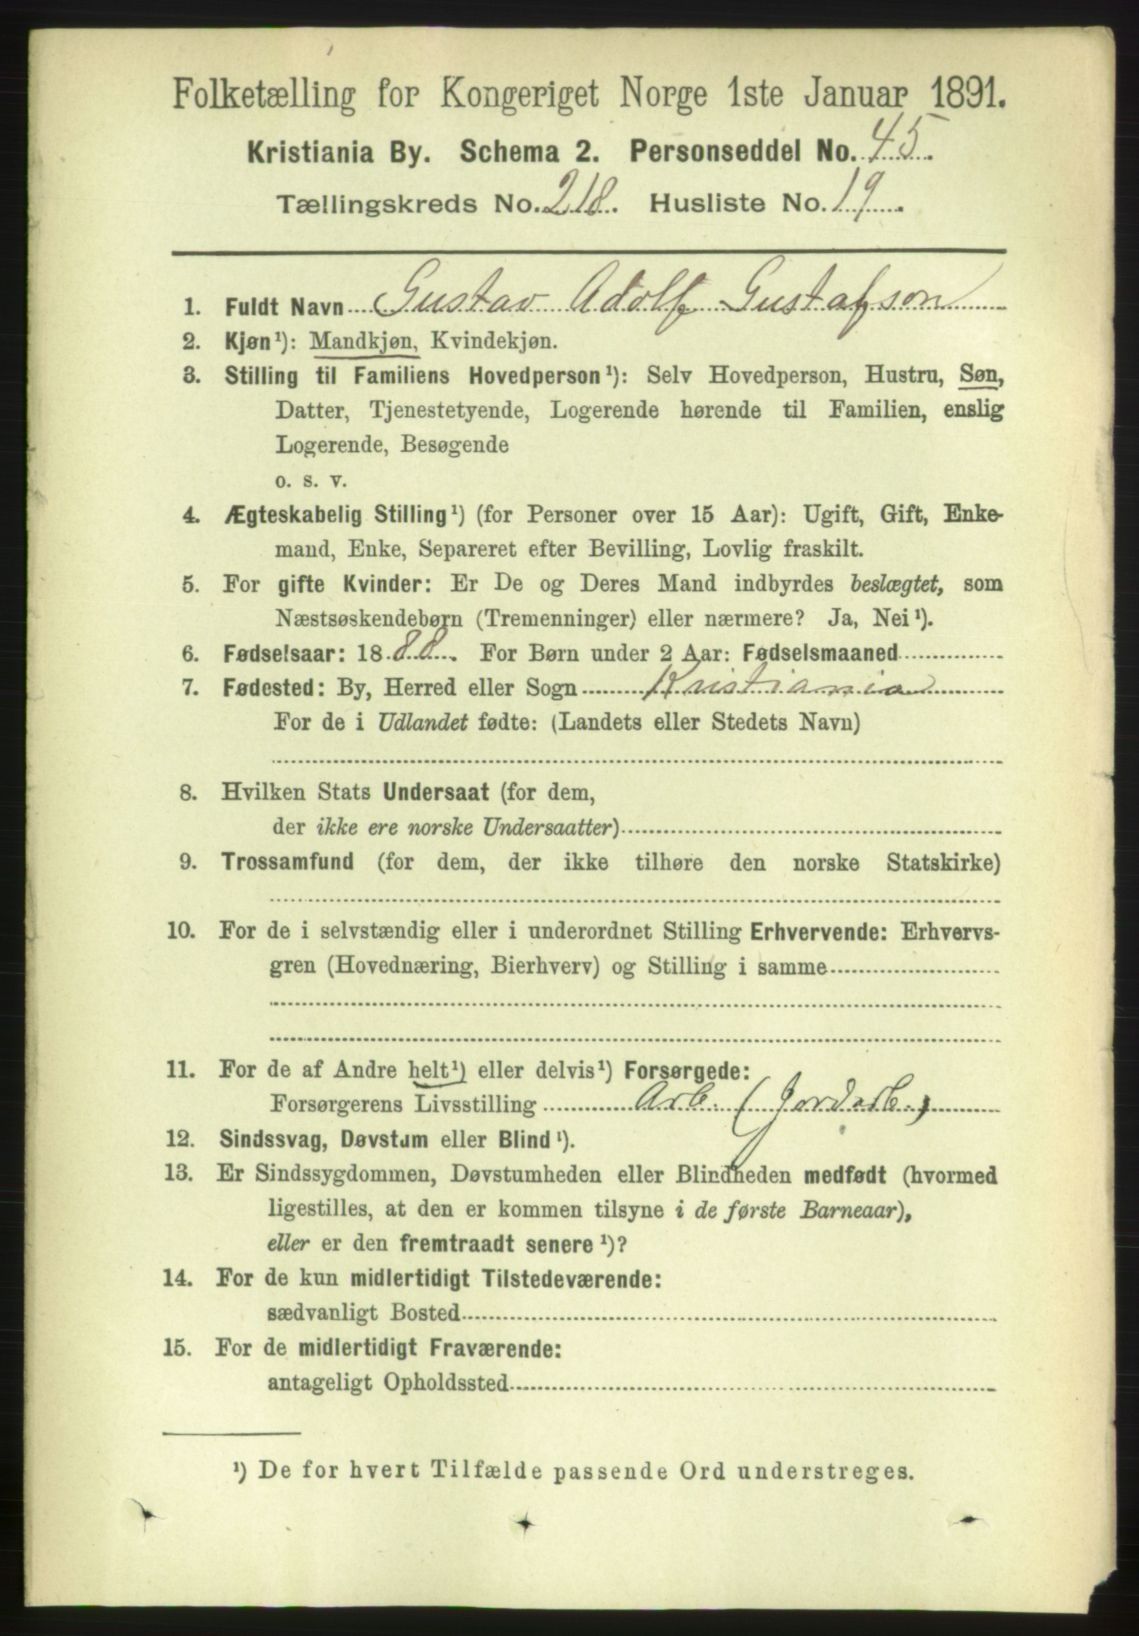 Folketælling for Kongeriget Norge 1ste Januar 1891.
Kristiania By. Schema 2. Personseddel No. 45.
Tællingskreds No. 218. Husliste No. 19.
1. Fuldt Navn Gustav Adolf Gustafson
2. Kjøn¹): Mandkjøn, Kvindekjøn.
3. Stilling til Familiens Hovedperson¹): Selv Hovedperson, Hustru, Søn,
Datter, Tjenestetyende, Logerende hørende til Familien, enslig
Logerende, Besøgende
o. s. v.
4. Ægteskabelig Stilling¹) (for Personer over 15 Aar): Ugift, Gift, Enke-
mand, Enke, Separeret efter Bevilling, Lovlig fraskilt.
5. For gifte Kvinder: Er De og Deres Mand indbyrdes beslægtet, som
Næstsøskendebørn (Tremenninger) eller nærmere? Ja, Nei¹).
6. Fødselsaar: 1888. For Børn under 2 Aar: Fødselsmaaned
7. Fødested: By, Herred eller Sogn Kristiania
For de i Udlandet fødte: (Landets eller Stedets Navn)
8. Hvilken Stats Undersaat (for dem,
der ikke ere norske Undersaatter)
9. Trossamfund (for dem, der ikke tilhøre den norske Statskirke)
10. For de i selvstændig eller i underordnet Stilling Erhvervende: Erhvervs-
gren (Hovednæring, Bierhverv) og Stilling i samme
11. For de af Andre helt¹) eller delvis¹) Forsørgede:
Forsørgerens Livsstilling Arb. (Jordarb.)
12. Sindssvag, Døvstum eller Blind¹).
13. Er Sindssygdommen, Døvstumheden eller Blindheden medfødt (hvormed
ligestilles, at den er kommen tilsyne i de første Barneaar),
eller er den fremtraadt senere¹)?
14. For de kun midlertidigt Tilstedeværende:
sædvanligt Bosted
15. For de midlertidigt Fraværende:
antageligt Opholdssted
¹) De for hvert Tilfælde passende Ord understreges.